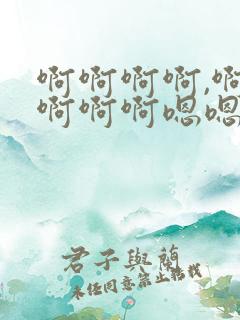 啊啊啊啊,啊
啊啊啊嗯嗯
君子與蘭
未经同意禁止搭找